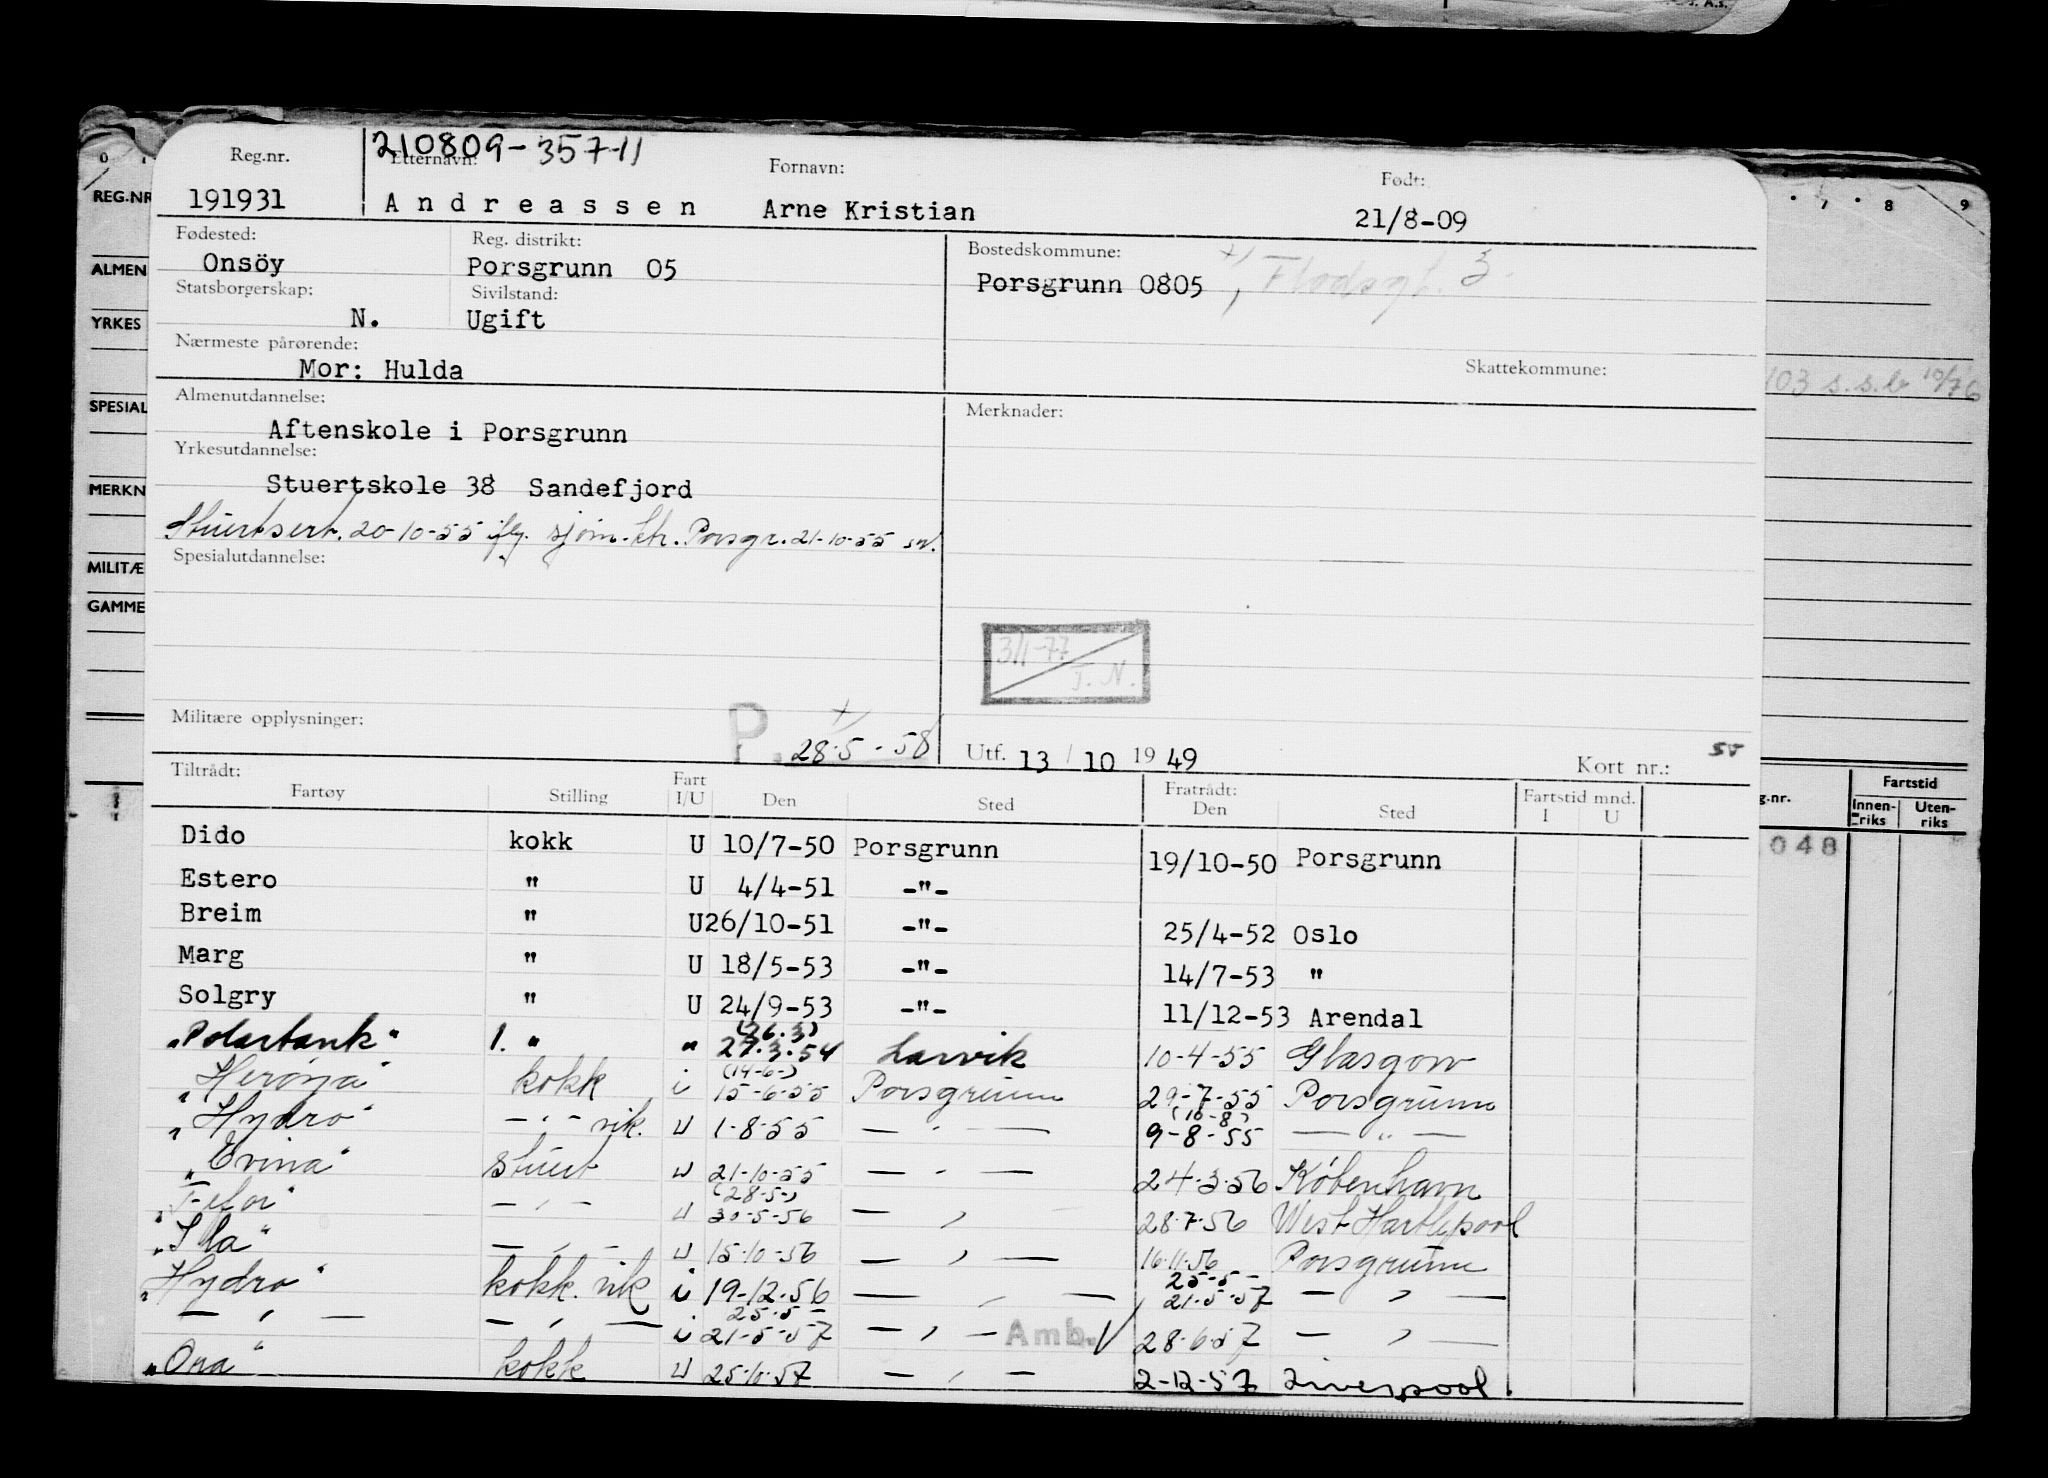 210809-35711
Reg.nr. Etternavn: Fornavn: Født:
191931 Andreassen Arne Kristian 21/8-09
Fødested: Reg. distrikt: Bostedskommune:
Onsöy Porsgrunn 05 Porsgrunn 0805, Flodsgt. 3.
Statsborgerskap: Sivilstand:
N. Ugift
Nærmeste pårørende: Skattekommune:
Mor: Hulda
Almenutdannelse: Merknader:
Aftenskole i Porsgrunn
Yrkesutdannelse:
Stuertskole 38 Sandefjord
Stuertsert. 20-10-55 iflg. sjøm.ktr. Porsgr. 21-10-55 sv.
Spesialutdannelse:
3/1-77
T.N.
Militære opplysninger: P. 28.5-58 Utf. 13/10 1949 Kort nr.:
Tiltrådt: Fratrådt:
Fartøy Stilling Fart I/U Den Sted Den Sted Fartstid mnd. I U
Dido kokk U 10/7-50 Porsgrunn 19/10-50 Porsgrunn
Estero " U 4/4-51 -"-
Breim " U 26/10-51 -"- 25/4-52 Oslo
Marg " U 18/5-53 -"- 14/7-53 "
Solgry " U 24/9-53 -"- 11/12-53 Arendal
"Polartank" 1. " " (26.3) 27.3.54 Larvik 10-4-55 Glasgow
"Herøya" kokk i (14-6-) 15-6-55 Porsgrunn 29-7-55 Porsgrunn
"Hydro" -"- vik. u 1-8-55 -"- (10-8) 9-8-55 -"-
"Evina" stuert u 21-10-55 -"- 24.3.56 København
"Fefor" -"- u (28-5-) 30-5-56 -"- 28.7.56 West Hartlepool
"Ila" -"- u 15-10-56 -"- 16.11.56 Porsgrunn
"Hydro" kokk. vik i 19-12-56 -"- 25-5- 21.5.57 -"-
-"- -"- i 25.5- 21-5-57 -"- Amb. 28.6.57 -"-
"Ora" kokk u 25.10.57 -"- 2-12-57 Liverpool.
REG.NR
ALMEN
YRKES
SPESIAL
MERKN
MILITÆ
GAMME
103 s.s.b 10/76
7 8 9
g.nr. Fartstid
Innenriks Utenriks
048